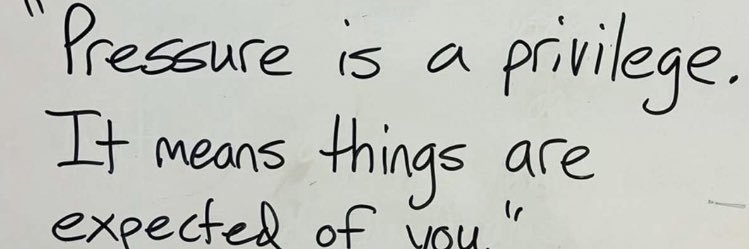 "Pressure is a privilege.
It means things are
expected of you."